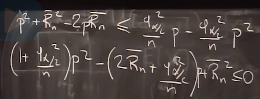 p² + R̄ₙ² - 2pR̄ₙ ≤ q²_{α/2}/n p - q²_{α/2}/n p²
(1 + q²_{α/2}/n)p² - (2R̄ₙ + q²_{α/2}/n)p + R̄ₙ² ≤ 0